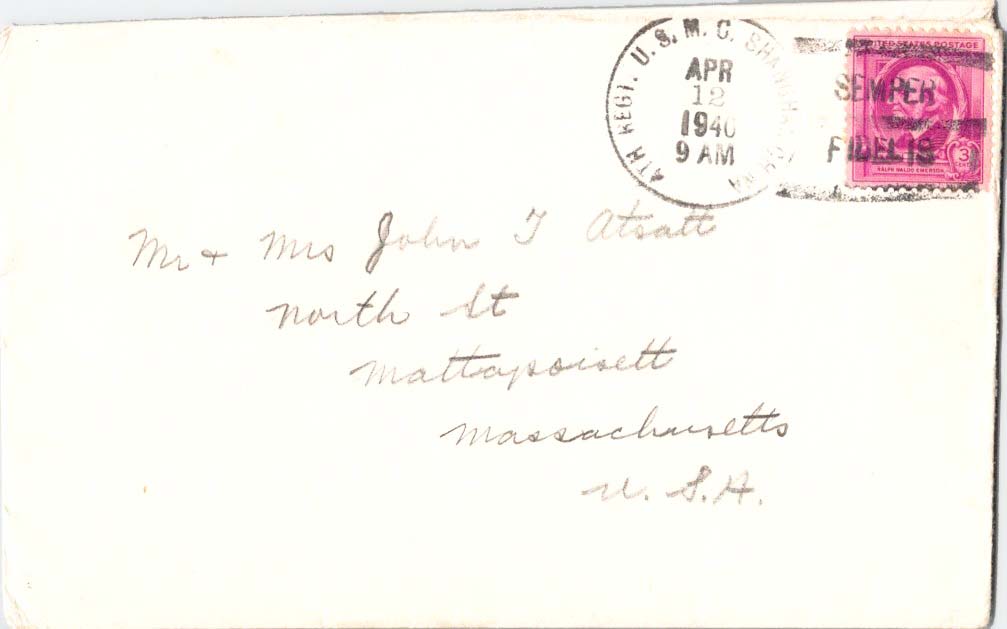 4TH REGT. U.S.M.C. SHANGHAI CHINA
APR
12
1940
9 AM
UNITED STATES POSTAGE
SEMPER
FIDELIS
3
CENTS
RALPH WALDO EMERSON
Mr + Mrs John T Atsatt
North St
Mattapoisett
Massachusetts
U.S.A.